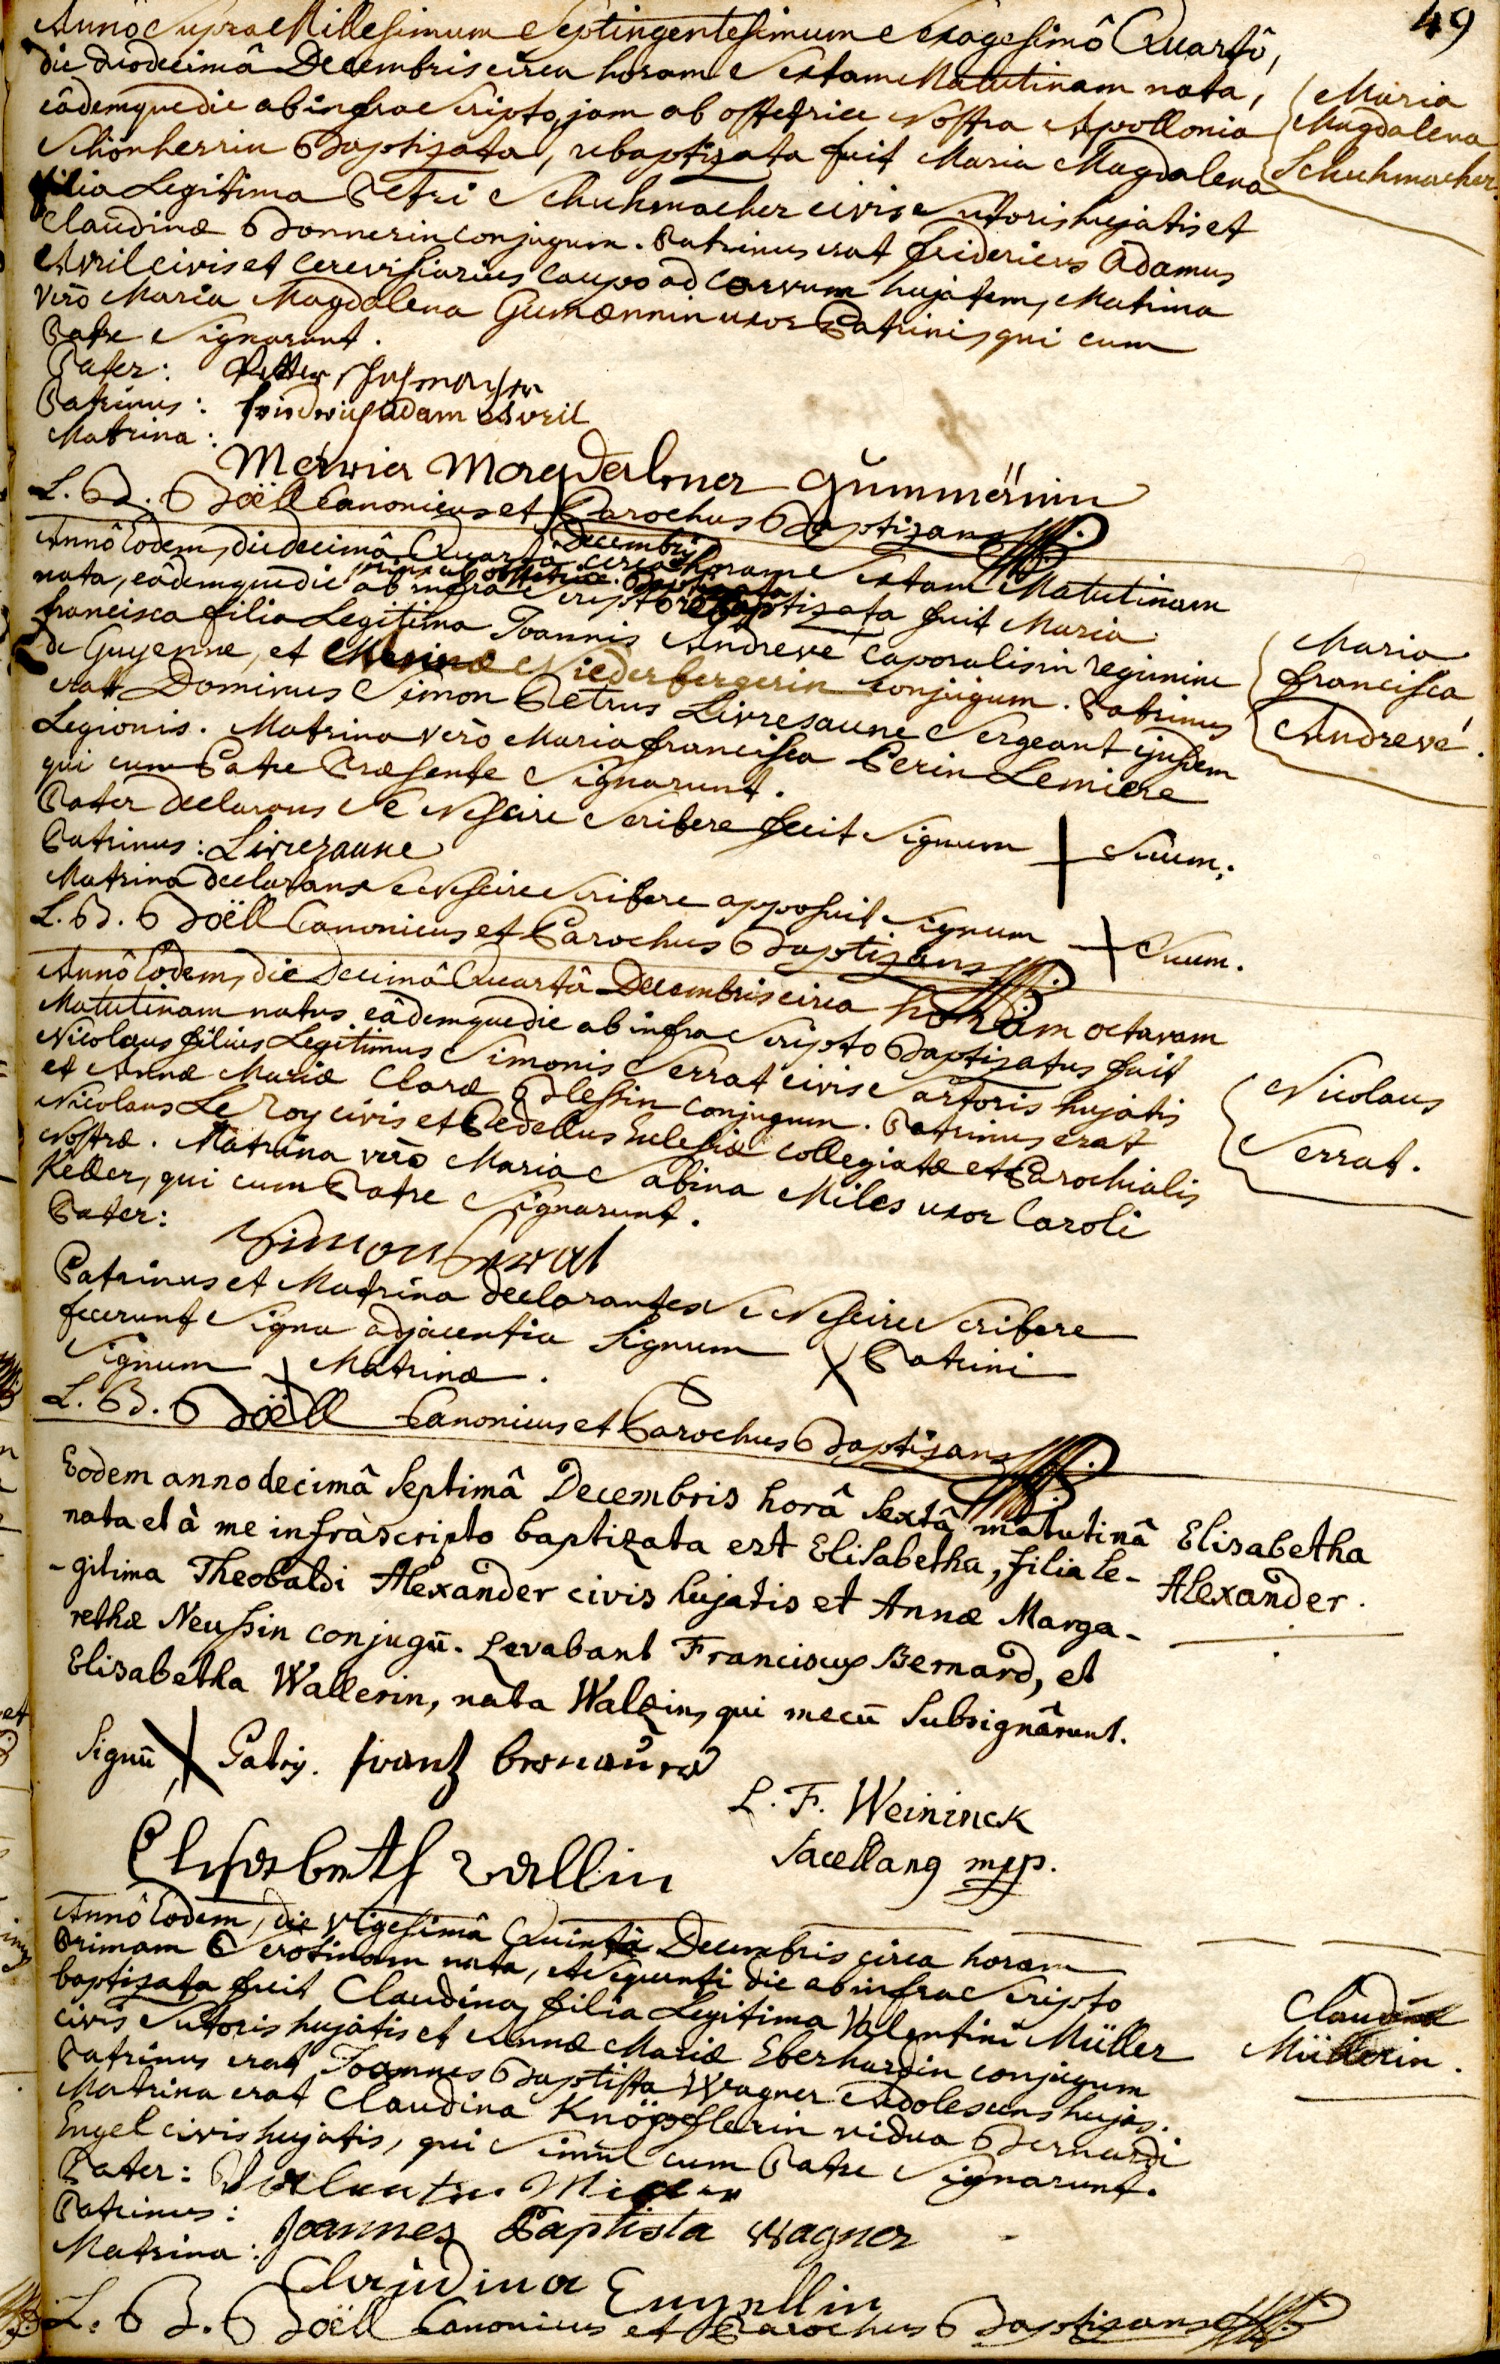 49
Annô Supra Millesimum Septingentesimum Sexagesimô Quartô,
die duodecimâ Decembris circa horam Sextam Matutinam nata,
eâdemque die ab infra Scripto, jam ab obstetrice Nostra Apollonia
Schönherrin Baptizata, rebaptizata fuit Maria Magdalena
filia Legitima Petri Schuhmacher civis Sutoris hujatis et
Claudinæ Bonnerin conjugum. Patrinus erat fridericus Adamus
Avril civis et Cerevisiarius Caupo ad Corvum hujatem, Matrina
verò Maria Magdalena Gumænnin uxor Patrini, qui cum
Patre Signarunt.
Maria
Magdalena
Schuhmacher.
Pater: Petter Schumacher
Patrinus: fridrich adam Avril
Matrina:
Maria Magdalena gummënnin
L. B. Boëll Canonicus et Parochus Baptizans
Annô Eodem, die decimâ Quartâ Decembris circa horam Sextam Matutinam
nata, eâdemque die ab infra Scripto prius ab obstetrice Baptizata rebaptizata fuit Maria
francisca filia Legitima Joannis Andreve Caporalis in regimine
de Guyenne, et Niederbergerin conjugum. Patrinus
erat Dominus Simon Petrus Livresaune Sergeant ejusdem
Legionis. Matrina verò Maria francisca Perin Lemiere
qui cum Patre Præsente Signarunt.
Maria
francisca
Andreve.
Pater declarans Se Nescire Scribere fecit Signum + Suum.
Patrinus: Livrezaune
Matrina declarans Se Nescire Scribere apposuit Signum + Suum.
L. B. Boëll Canonicus et Parochus Baptizans
Annô Eodem, die Decimâ Quartâ Decembris circa horam octavam
Matutinam natus eâdemque die ab infra Scripto Baptizatus fuit
Nicolaus filius Legitimus Simonis Serrat civis Sartoris hujatis
et Annæ Mariæ Claræ Blessin conjugum. Patrinus erat
Nicolaus Le Roy civis et Pedellus Eclesiæ Collegiatæ et Parochialis
Nostræ. Matrina verò Maria Sabina Miles uxor Caroli
Keller, qui cum Patre Signarunt.
Nicolaus
Serrat.
Pater: Simon Serat
Patrinus et Matrina declarantes Se Nescire Scribere
fecerunt Signa adjacentia Signum X Patrini
Signum X Matrinæ.
L. B. Boëll Canonicus et Parochus Baptizans
Eodem anno decimâ Septimâ Decembris horâ Sextâ matutinâ
nata et à me infràscripto baptizata est Elisabetha, filia le-
-gitima Theobaldi Alexander civis hujatis et Annæ Marga-
rethæ Neussin conjugū. Levabant Franciscus Bernard, et
Elisabetha Wallerin, nata Walzin, qui mecū Subsignârunt.
Elisabetha
Alexander.
Signū X Patris. frantz bernaurd
L. F. Weininck
Sacellanus mpp.
Elisabeth wallin
Annô Eodem, die vigesimâ Quintâ Decembris circa horam
Primam Serotinam nata, et Sequenti die ab infra Scripto
baptizata fuit Claudina, filia Legitima Valentini Müller
civis Sutoris hujatis et Annæ Mariæ Eberhardin conjugum
Patrinus erat Joannes Baptista Wagner Adolescens hujas.
Matrina erat Claudina Knöpflerin vidua Bernardi
Engel civis hujatis, qui Simul cum Patre Signarunt.
Claudina
Müllerin.
Pater: Valentin Miller
Patrinus: Joannes Baptista Wagner
Matrina:
Claudina Engellin
L. B. Boëll Canonicus et Parochus Baptizans